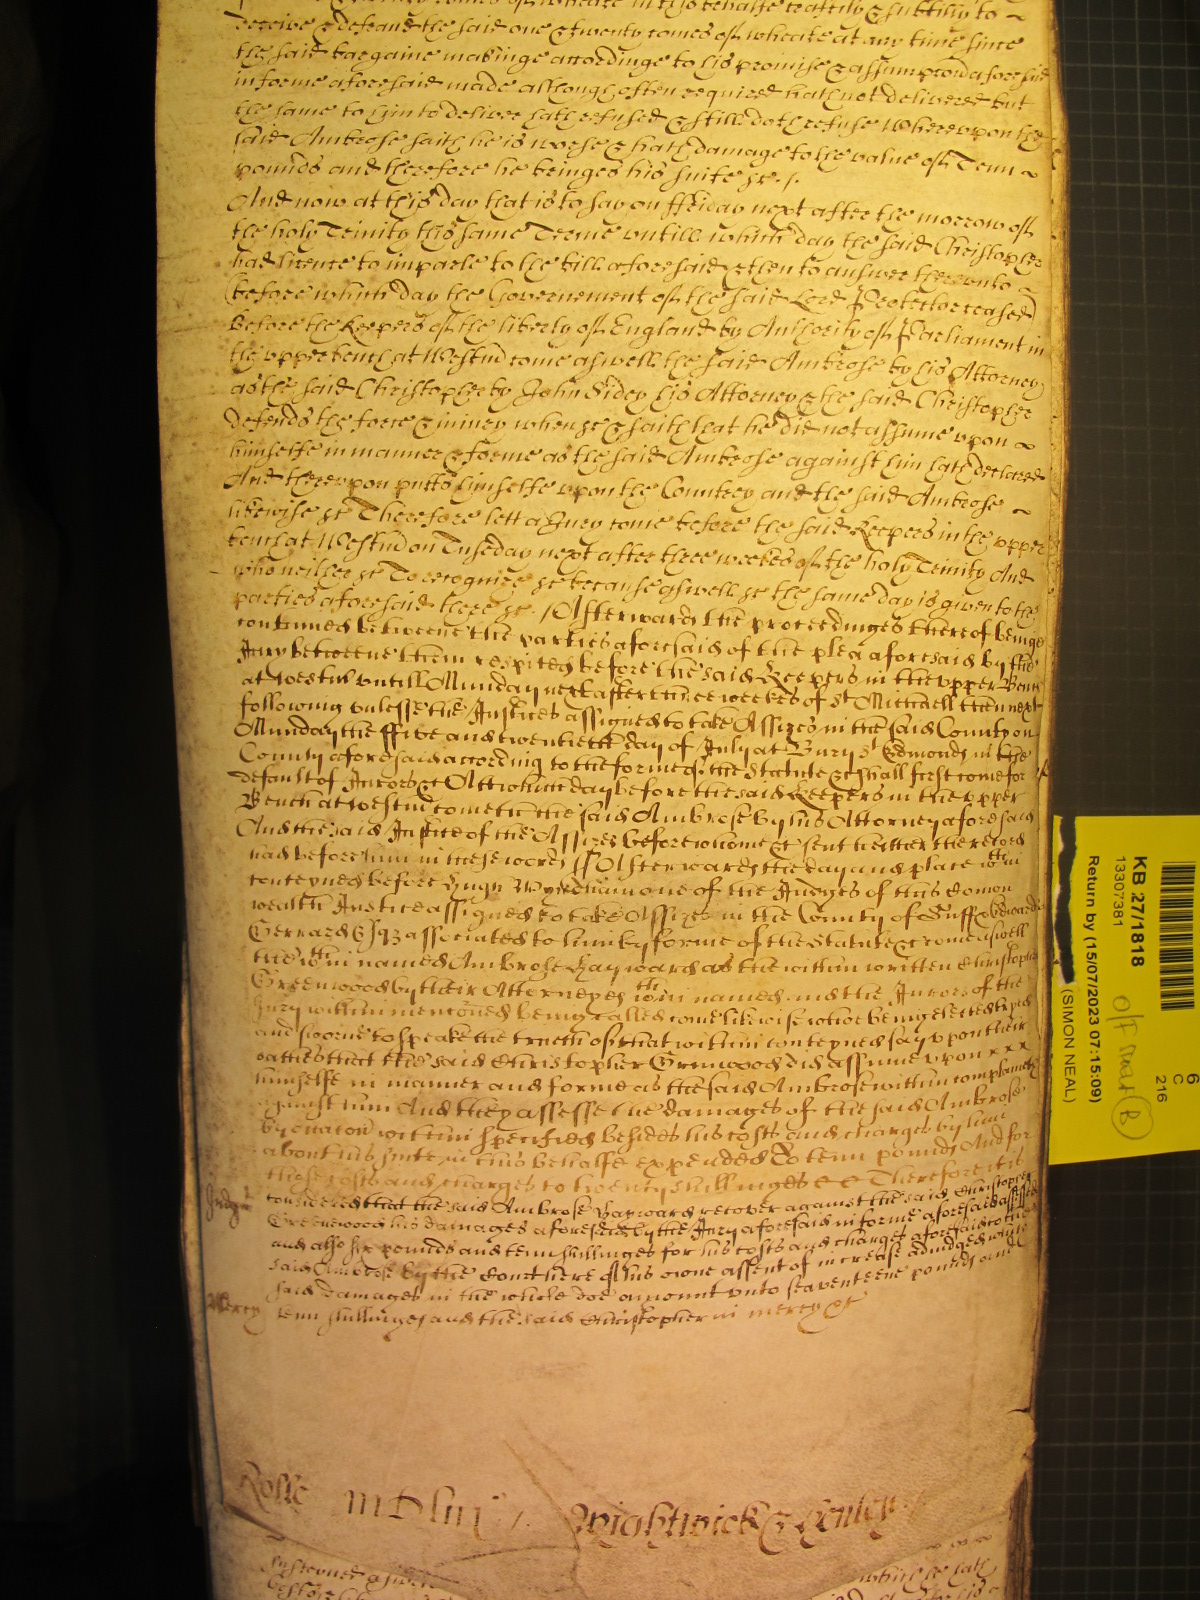 deceive & defraud the said one & twenty combes of wheate at any time since
the said bargaine makinge accordinge to his promise & assumpcon aforesaid
in forme aforesaid made although often required hath not delivered but
the same to him to deliver hath refused & still doth refuse Whereupon the
said Ambrose saith he is worse & hath damage to the value of Tenn
pounds and therefore he bringes his suite &c.
And now at this day that is to say on ffriday next after the morrow of
the holy Trinity this same Terme untill which day the said Christopher
had licence to imparle to the bill aforesaid & then to answer thereunto
(before which day the Governement of the said Lord Protector ceased)
Before the Keepers of the liberty of England by Authority of Parliament in
the upper bench at Westm come aswell the said Ambrose by his Attorney
as the said Christopher by John Sidey his Attorney & the said Christopher
defends the force & iniury when &c & saith that he did not assume upon
himselfe in manner & forme as the said Ambrose against him hath declared
And thereupon putts himselfe upon the Countrey and the said Ambrose
likewise &c Therefore lett a Jury come before the said Keepers in the upper
bench at Westm on Tuseday next after three weekes of the holy Trinity And
who neither &c To recognize &c because aswell &c the same day is given to the
parties aforesaid there &c. Afterwards the proceedinges thereof beinge
continued betweene the parties aforesaid of the plea aforesaid by the
Jury betweene them respited before the said Keepers in the upper Bench
at Westm untill Munday next after three weekes of St Michaell then next
following unlesse the Justices assigned to take Assizes in the said County on
Munday the ffive and twentieth day of July at Bury St Edmonds in the
County aforesaid according to the forme of the Statute &c shall first come for
default of Jurors &c Att which day before the said Keepers in the upper
Bench at Westm cometh the said Ambrose by his Attorney aforesaid
And the said Justice of the Assizes before whome &c sent hither the record
had before him in these words ss Afterwards the day and place wthin
conteyned before Hugh Wyndham one of the Judges of this Comon
wealth Justice assigned to take Assizes in the County of Suff Edward
Gerrard Esqr associated to him by forme of the Statute &c come aswell
the wthin named Ambrose Hayward as the within written Christopher
Greenwood by their Attorneyes wthin named and the Jurors of the
Jury within menconed being called come likewise whoe being elected tryed
and sworne to speake the trueth of that within conteyned say upon their
oathes that the said Christopher Grenwood did assume upon x x x
himselfe in manner and forme as the said Ambrose within complaineth
against him And they assesse the damages of the said Ambrose
by occacon within specified besides his costs and charges by him
about his suite in this behalfe expended To tenn pounds And for
those costs and charges to twenty shillinges &c Therefore it is
Judgt
considered that the said Ambrose Hayward recover against the said Christopher
Greenewood his damages aforesaid by the Jury aforesaid in forme aforesaid assessed
and also six pounds and tenn shillinges for his costs and charges aforesaid to the
said Ambrose by the Court here of his owne assent of increase adiudged which
said damages in the whole doe amount unto seaventeene pounds and
Mercy
tenn shillinges and the said Christopher in mercy &c
Rolle
Wightwick &
KB 27/1818
13307381
Return by (15/07/2023 07:15:09)
(SIMON NEAL)
6
C
216
B